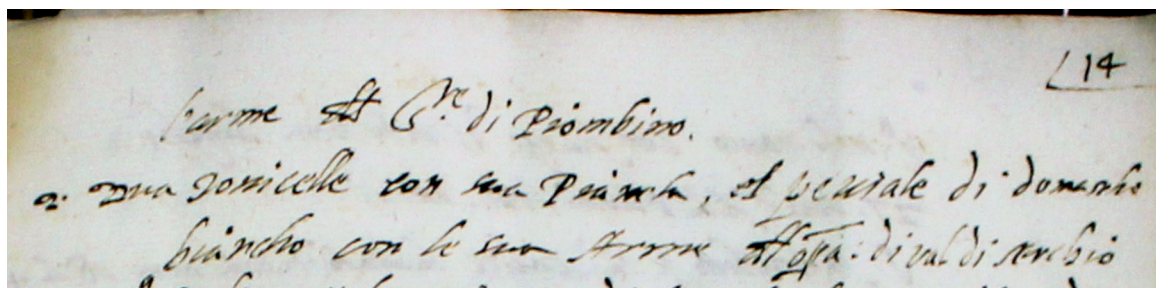 14
l'arme dll S.re di Piombino.
2. Dua Tonicelle con sua Pianeta, et peviale di domascho
biancho con le sua Arme dll opa: di val di serchio